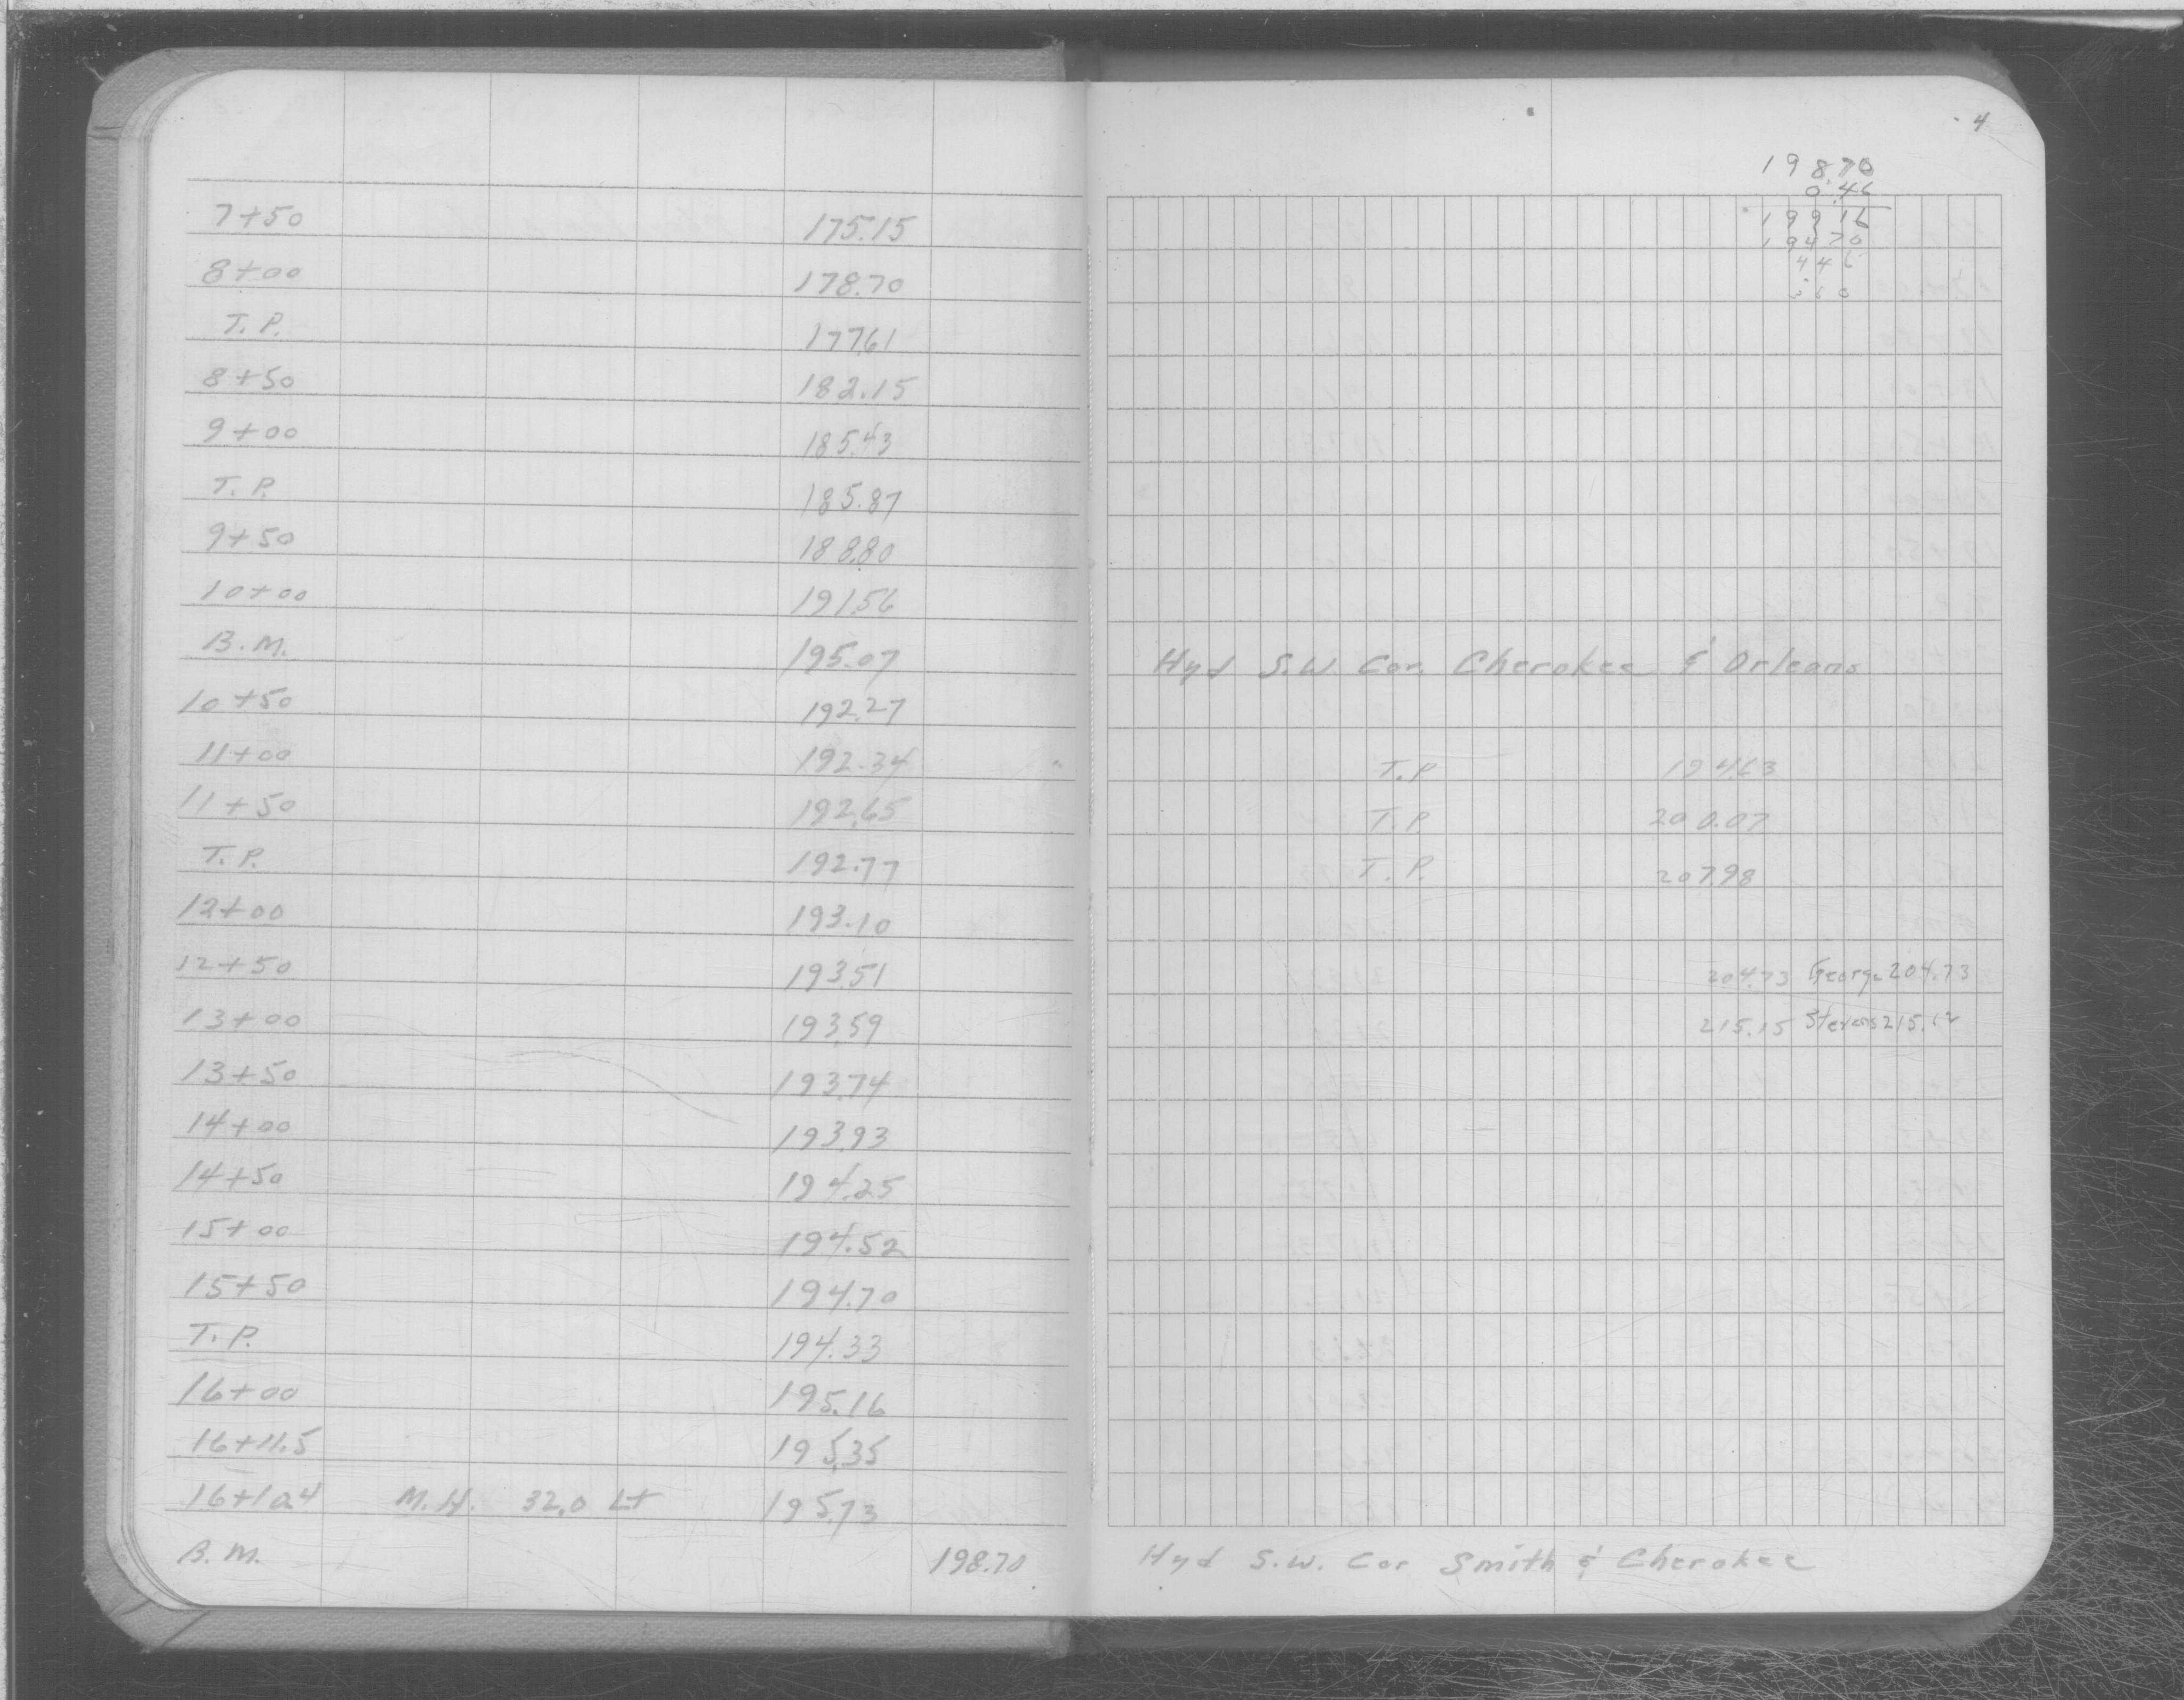 4
198.70
0.46
199 16
194 70
4 4 6
7+50 175.15
8+00 178.70
T. P. 177.61
8+50 182.15
9+00 185.43
T. P. 185.87
9+50 188.80
10+00 191.56
B. M. 195.07 Hyd S.W. Cor. Cherokee & Orleans
10+50 192.27
11+00 192.34 T.P 194.63
11+50 192.65 T.P. 200.07
T. P. 192.77 T. P. 207.98
12+00 193.10
12+50 193.51 204.73 George 204.73
13+00 193.59 215.15 Stevens 215.12
13+50 193.74
14+00 193.93
14+50 194.25
15+00 194.52
15+50 194.70
T. P. 194.33
16+00 195.16
16+11.5 195.35
16+10.4 M.H. 32.0 Lt 195.73
B. M. 198.70 Hyd S.W. Cor Smith & Cherokee